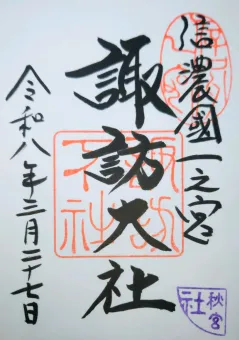 信濃國一之宮
諏訪大社
令和八年三月二十七日
秋宮
社